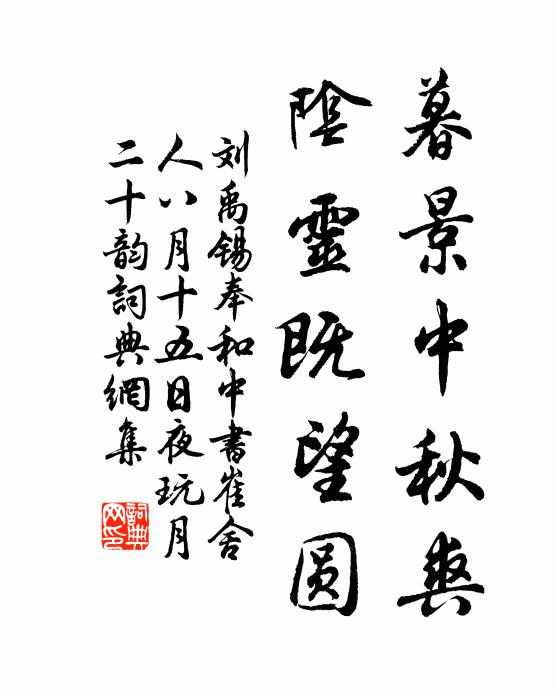 暮景中秋爽
陰靈既望圆
刘禹锡奉和中書崔舍
人八月十五日夜玩月
二十韵詞典網集
詞典网印